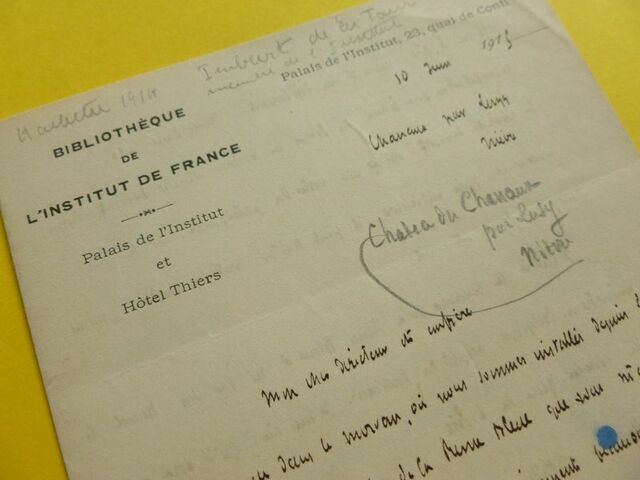 Imbert de La Tour
membre de l'Institut
Palais de l'Institut, 23, quai de Conti
BIBLIOTHÈQUE
DE
L'INSTITUT DE FRANCE
Palais de l'Institut
et
Hôtel Thiers
10 Juin 1915
par Luzy
Nièvre
par Luzy
mon cher directeur et confrère
dans le morvan, où nous sommes installés depuis
de la Revue Bleue que vous m'